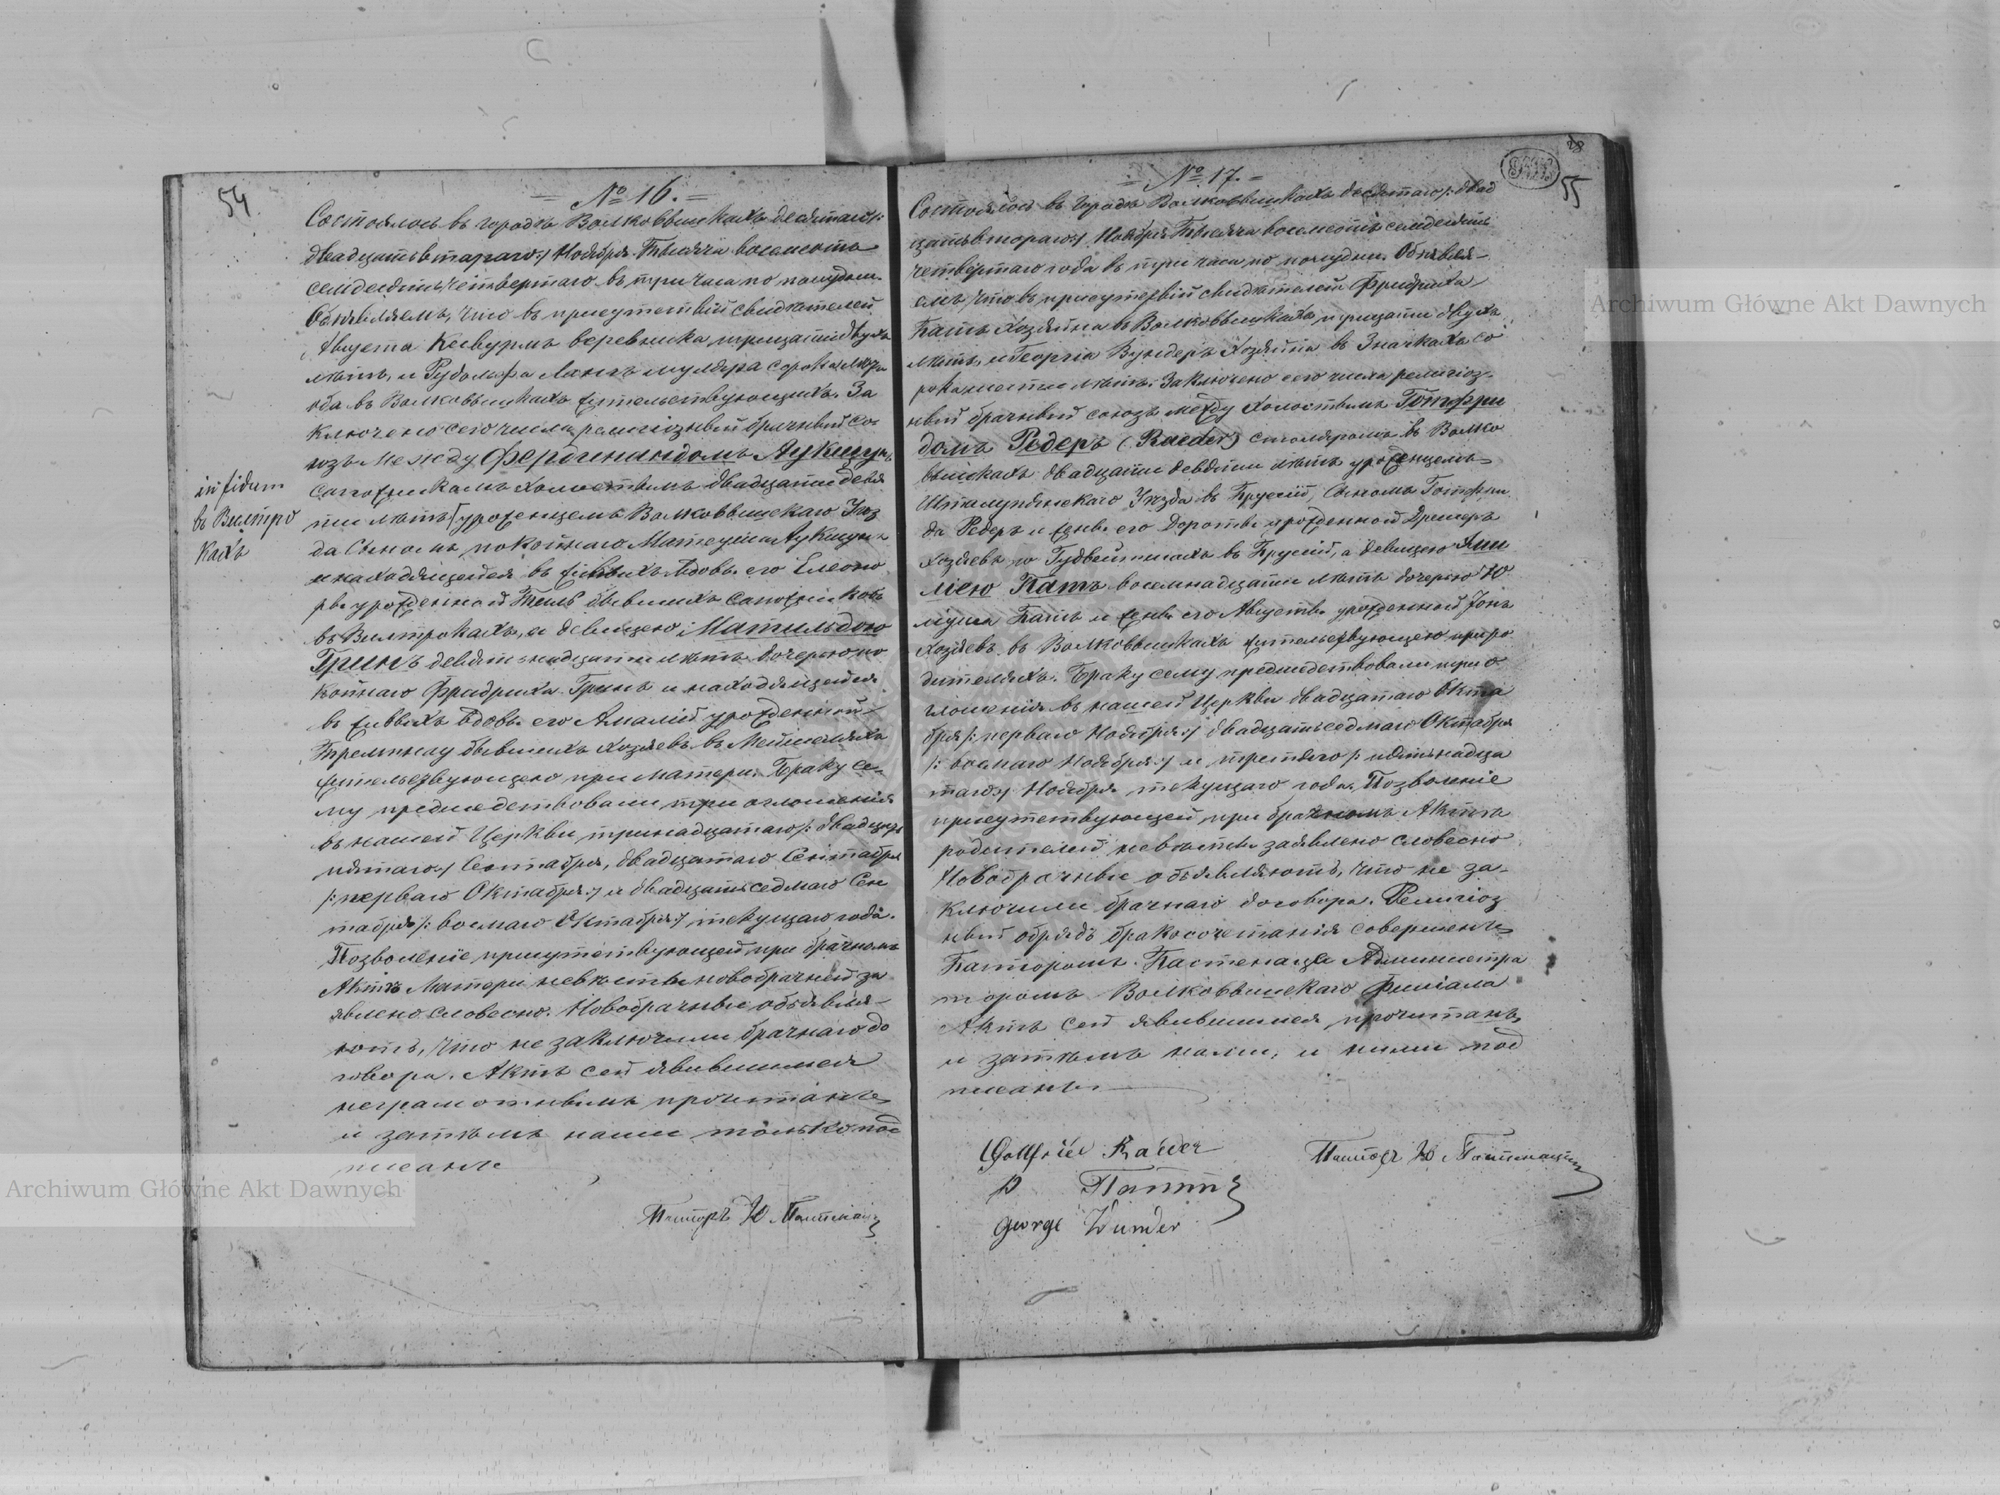 54
№ 16.
Состоялось въ городѣ Волковышкахъ десятаго /:
двадцать втораго :/ Ноября Тысяча восемсотъ
семдесятъ четвертаго въ три часа по полудни.
Объявляемъ, что въ присутствіи свидѣтелей
Августа веревника тридцати двухъ
лѣтъ, и Рудольфа Лангъ муляра сорока лѣтъ
оба въ Волковышкахъ жительствующихъ. За
ключено сего числа религіозный брачный со
юзъ между Фердинандомъ
Сапожникомъ холостымъ двадцати девя
ти лѣтъ урожденцемъ Волковышскаго Уѣз
да Сыномъ покойнаго Матеуша
и находящейся въ живыхъ вдовы его Елеоно
ры урожденной бывшихъ Сапожниковъ
въ Вилтрокахъ, и девицею Матильдою
Гринъ девятьнадцати лѣтъ дочерью по
койнаго Фридриха Гринъ и находящейся
въ живыхъ вдовы его Амаліи урожденной
бывшихъ хозяевъ въ
жительствующею при матери. Браку се
му предшедствовали три оглошенія
въ нашей Церкви тринадцатаго /: двадцать
пятаго :/ Сентября, двадцатаго Сентября
/: перваго Октября :/ и двадцать седмаго Сен
тября /: восмаго Октября :/ текущаго года.
Позволеніе присутствующей при брачномъ
Актѣ Матери невѣсты новобрачной за
явлено словесно. Новобрачные объявля
ютъ, что не заключили брачнаго до
говора. Актъ сей явившимся
неграмотнымъ прочитанъ
и затѣмъ нами только под
писанъ
Пасторъ Ю Пастенаци
in fidem
въ Вилтро
кахъ
28
55
№ 17.
Состоялось въ городѣ Волковышкахъ десятаго /: двад
цать втораго :/ Ноября Тысяча восемсотъ семдесятъ
четвертаго года въ три часа по полудни. Объявля
емъ, что въ присутствіи свидѣтелей Фридриха
Патъ хозяина въ Волковышкахъ тридцати двухъ
лѣтъ, и Георгія Вундеръ хозяина въ Значкахъ со
рока шести лѣтъ. Заключено сего числа религіоз
ный брачный союзъ между холостымъ Готфри
домъ Редеръ (Raeder) столяромъ въ Волко
вышкахъ двадцати девяти лѣтъ урожденцемъ
Шталупянскаго Уѣзда въ Пруссіи, Сыномъ Готфри
да Редеръ и жены его Доротеи урожденной
хозяевъ въ Пруссіи, а девицею Эми
ліею Патъ восемнадцати лѣтъ дочерью Ю
ліуша Патъ и жены его Августы урожденной
хозяевъ въ Волковышкахъ жительствующею при ро
дителяхъ. Браку сему предшедствовали три о
глошенія въ нашей Церкви двадцатаго Октя
бря /: перваго Ноября :/ двадцать седмаго Октября
/: восмаго Ноября :/ и третьяго /: пятьнадца
таго :/ Ноября текущаго года. Позволеніе
присутствующей при брачномъ Актѣ
родителей невѣсты заявлено словесно
Новобрачные объявляютъ, что не за
ключили брачнаго договора. Религіоз
ный обрядъ бракосочетанія совершенъ
Пасторомъ Пастенаци Администра
торомъ Волковышскаго Филіала
Актъ сей явившимся прочитанъ,
и затѣмъ нами, и ними под
писанъ
Gottfried Raeder
Пасторъ Ю Пастенаци
George Wunder
Archiwum Główne Akt Dawnych
Archiwum Główne Akt Dawnych